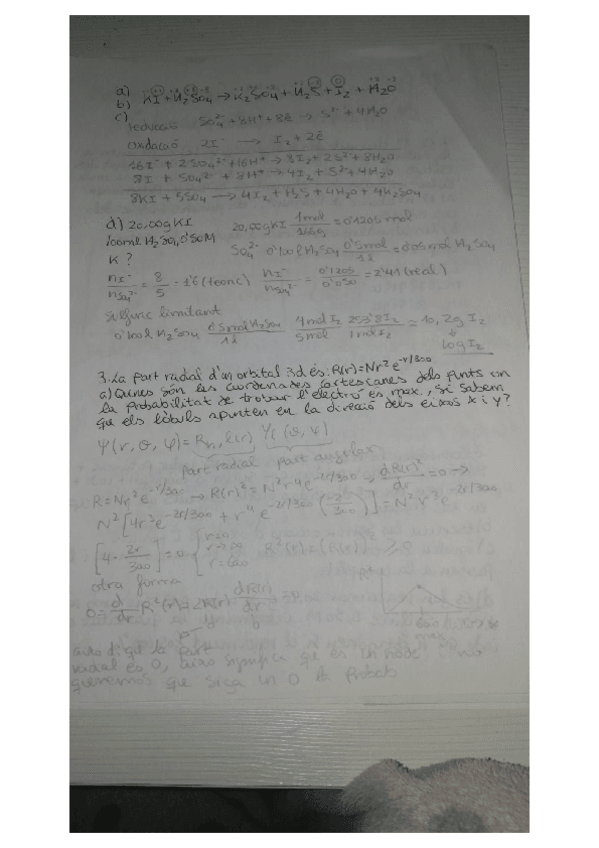 a) KI + H₂SO₄ → K₂SO₄ + H₂S + I₂ + H₂O
b)
c)
reducció SO₄²⁻ + 8H⁺ + 8e → S²⁻ + 4H₂O
oxidació 2I⁻ → I₂ + 2e
16I⁻ + 2SO₄²⁻ + 16H⁺ → 8I₂ + 2S²⁻ + 8H₂O
8I + SO₄²⁻ + 8H⁺ → 4I₂ + S²⁻ + 4H₂O
8KI + 5SO₄ → 4I₂ + H₂S + 4H₂O + 4K₂SO₄
d) 20,00g KI 20,00g KI 1mol/166g = 0'1205 mol
100ml H₂SO₄ 0'50M SO₄²⁻ 0'100l H₂SO₄ 0'5mol/1l = 0'05 mol H₂SO₄
K ?
nI⁻/nSO₄²⁻ = 8/5 = 1'6 (teòric) nI⁻/nSO₄²⁻ = 0'1205/0'050 = 2'41 (real)
sulfúric limitant
0'100l H₂SO₄ 0'5mol H₂SO₄/1l 4mol I₂/5mol 253'8 I₂/1mol I₂ = 10,2g I₂
10g I₂
3. La part radial d'un orbital 3d és: R(r) = Nr² e^(-r/300)
a) Quines són les coordenades cartesianes dels punts on
la probabilitat de trobar l'electró és max., si sabem
que els lòbuls apunten en la direcció dels eixos x i y?
Ψ(r, θ, φ) = Rn,l(r) Y(θ, φ)
part radial part angular
R = Nr² e^(-r/300) → R(r)² = N² r⁴ e^(-2r/300) → dR(r)²/dr = 0 →
N² [4r³ e^(-2r/300) + r⁴ e^(-2r/300) (-2/300)] = N² r³ e^(-2r/300)
[4 - 2r/300] = 0 r=0 r→∞ r=600 R²(r) = (R(r))²
otra forma
0 = d/dr R²(r) = 2R(r) dR(r)/dr = 0
600
això di que la part
radial es 0, això significa que es un node no
queremos que siga un 0 la probab